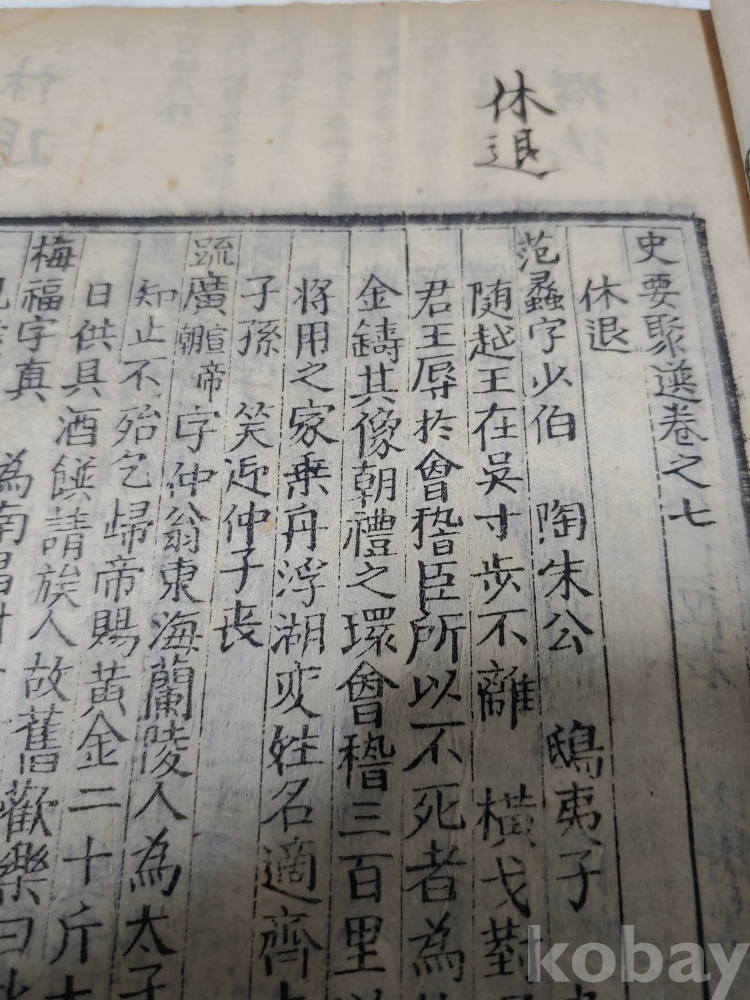 休退
史要聚選卷之七
休退
范蠡字少伯 陶朱公 鴟夷子
隨越王在吳寸步不離 橫戈對
君王辱於會稽臣所以不死者為
金鑄其像朝禮之環會稽三百里
將用之家乗舟浮湖变姓名適齊
子孫 笑迎仲子丧
疏廣宣帝朝字仲翁東海蘭陵人為太子
知止不殆乞歸帝賜黃金二十斤
日供具酒饌請族人故舊歡樂曰
梅福字真 為南昌尉
kobay